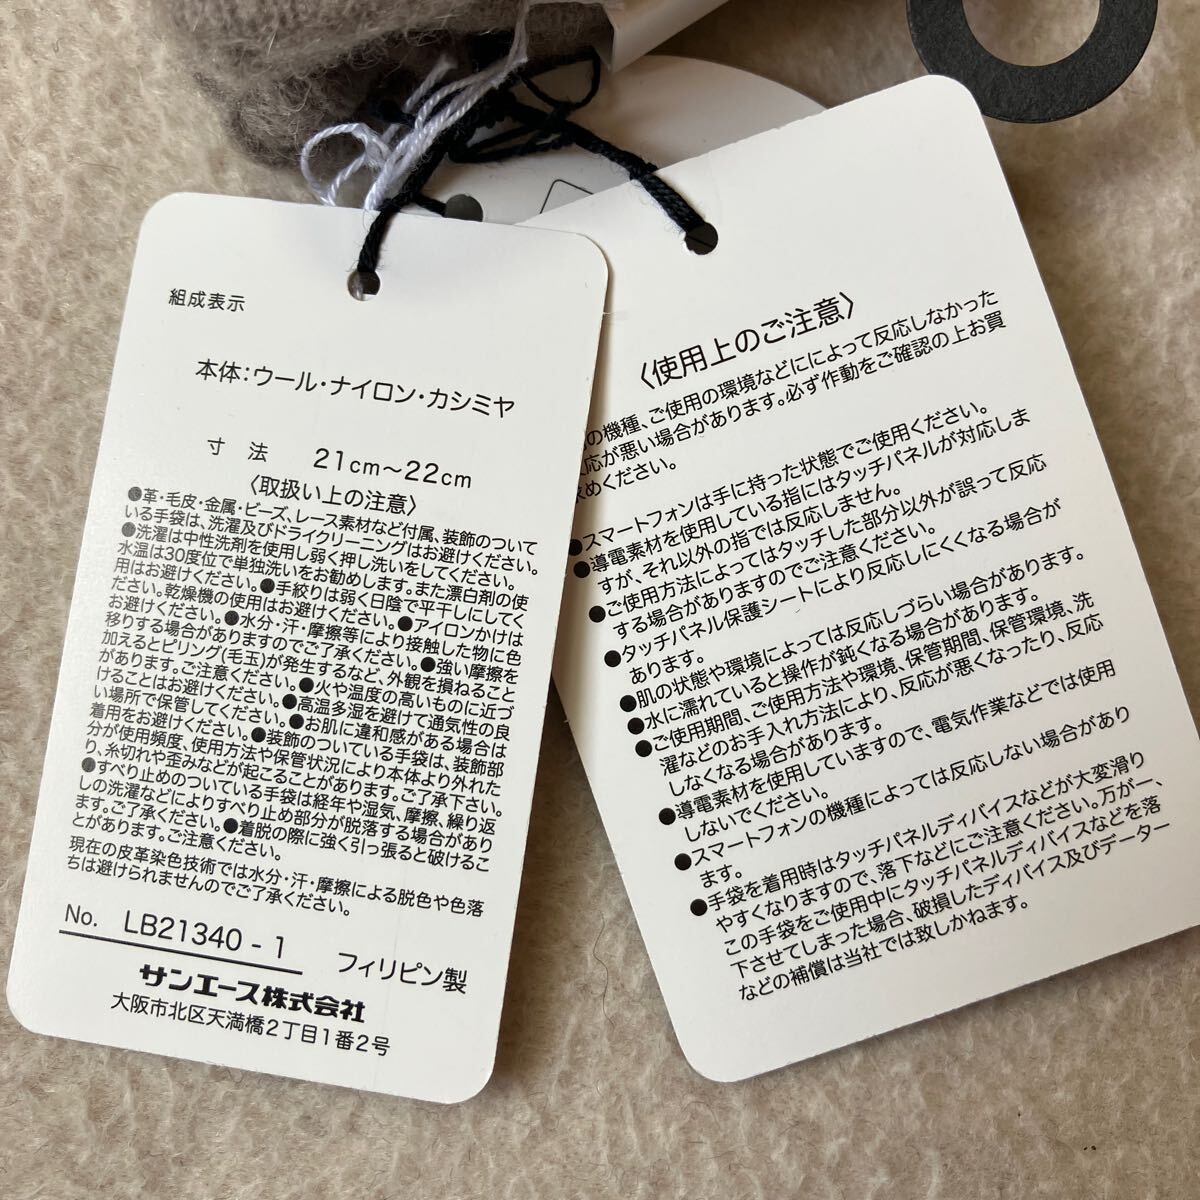 組成表示
本体:ウール・ナイロン・カシミヤ
寸 法 21cm～22cm
〈取扱い上の注意〉
●革・毛皮・金属・ビーズ、レース素材など付属、装飾のついて
いる手袋は、洗濯及びドライクリーニングはお避けください。
●洗濯は中性洗剤を使用し弱く押し洗いをしてください。
水温は30度位で単独洗いをお勧めします。また漂白剤の使
用はお避けください。●手絞りは弱く日陰で平干しにしてく
ださい。乾燥機の使用はお避けください。●アイロンかけは
お避けください。●水分・汗・摩擦等により接触した物に色
移りする場合がありますのでご了承ください。●強い摩擦を
加えるとピリング(毛玉)が発生するなど、外観を損ねること
があります。ご注意ください。●火や温度の高いものに近づ
けることはお避けください。●高温多湿を避けて通気性の良
い場所で保管してください。●お肌に違和感がある場合は
着用をお避けください。●装飾のついている手袋は、装飾部
分が使用頻度、使用方法や保管状況により本体より外れた
り、糸切れや歪みなどが起こることがあります。ご了承下さい。
●すべり止めのついている手袋は経年や湿気、摩擦、繰り返
しの洗濯などによりすべり止め部分が脱落する場合があり
ます。ご了承ください。●着脱の際に強く引っ張ると破けるこ
とがあります。ご注意ください。
現在の皮革染色技術では水分・汗・摩擦による脱色や色落
ちは避けられませんのでご了承ください。
No. LB21340 - 1
フィリピン製
サンエース株式会社
大阪市北区天満橋2丁目1番2号
〈使用上のご注意〉
の機種、ご使用の環境などにによって反応しなかった
応が悪い場合があります。必ず作動をご確認の上お買
求めください。
●スマートフォンは手に持った状態でご使用ください。
●導電素材を使用している指にはタッチパネルが対応しま
すが、それ以外の指では反応しません。
●ご使用方法によってはタッチした部分以外が誤って反応
する場合がありますのでご注意ください。
●タッチパネル保護シートにより反応しにくくなる場合が
あります。
●肌の状態や環境によっては反応しづらい場合があります。
●水に濡れていると操作が鈍くなる場合があります。
●ご使用期間、ご使用方法や環境、保管期間、保管環境、洗
濯などのお手入れ方法により、反応が悪くなったり、反応
しなくなる場合があります。
●導電素材を使用していますので、電気作業などでは使用
しないでください。
●スマートフォンの機種によっては反応しない場合があり
ます。
●手袋を着用時はタッチパネルディバイスなどが大変滑り
やすくなりますので、落下などにご注意ください。万が一、
この手袋をご使用中にタッチパネルディバイスなどを落
下させてしまった場合、破損したディバイス及びデーター
などの補償は当社では致しかねます。